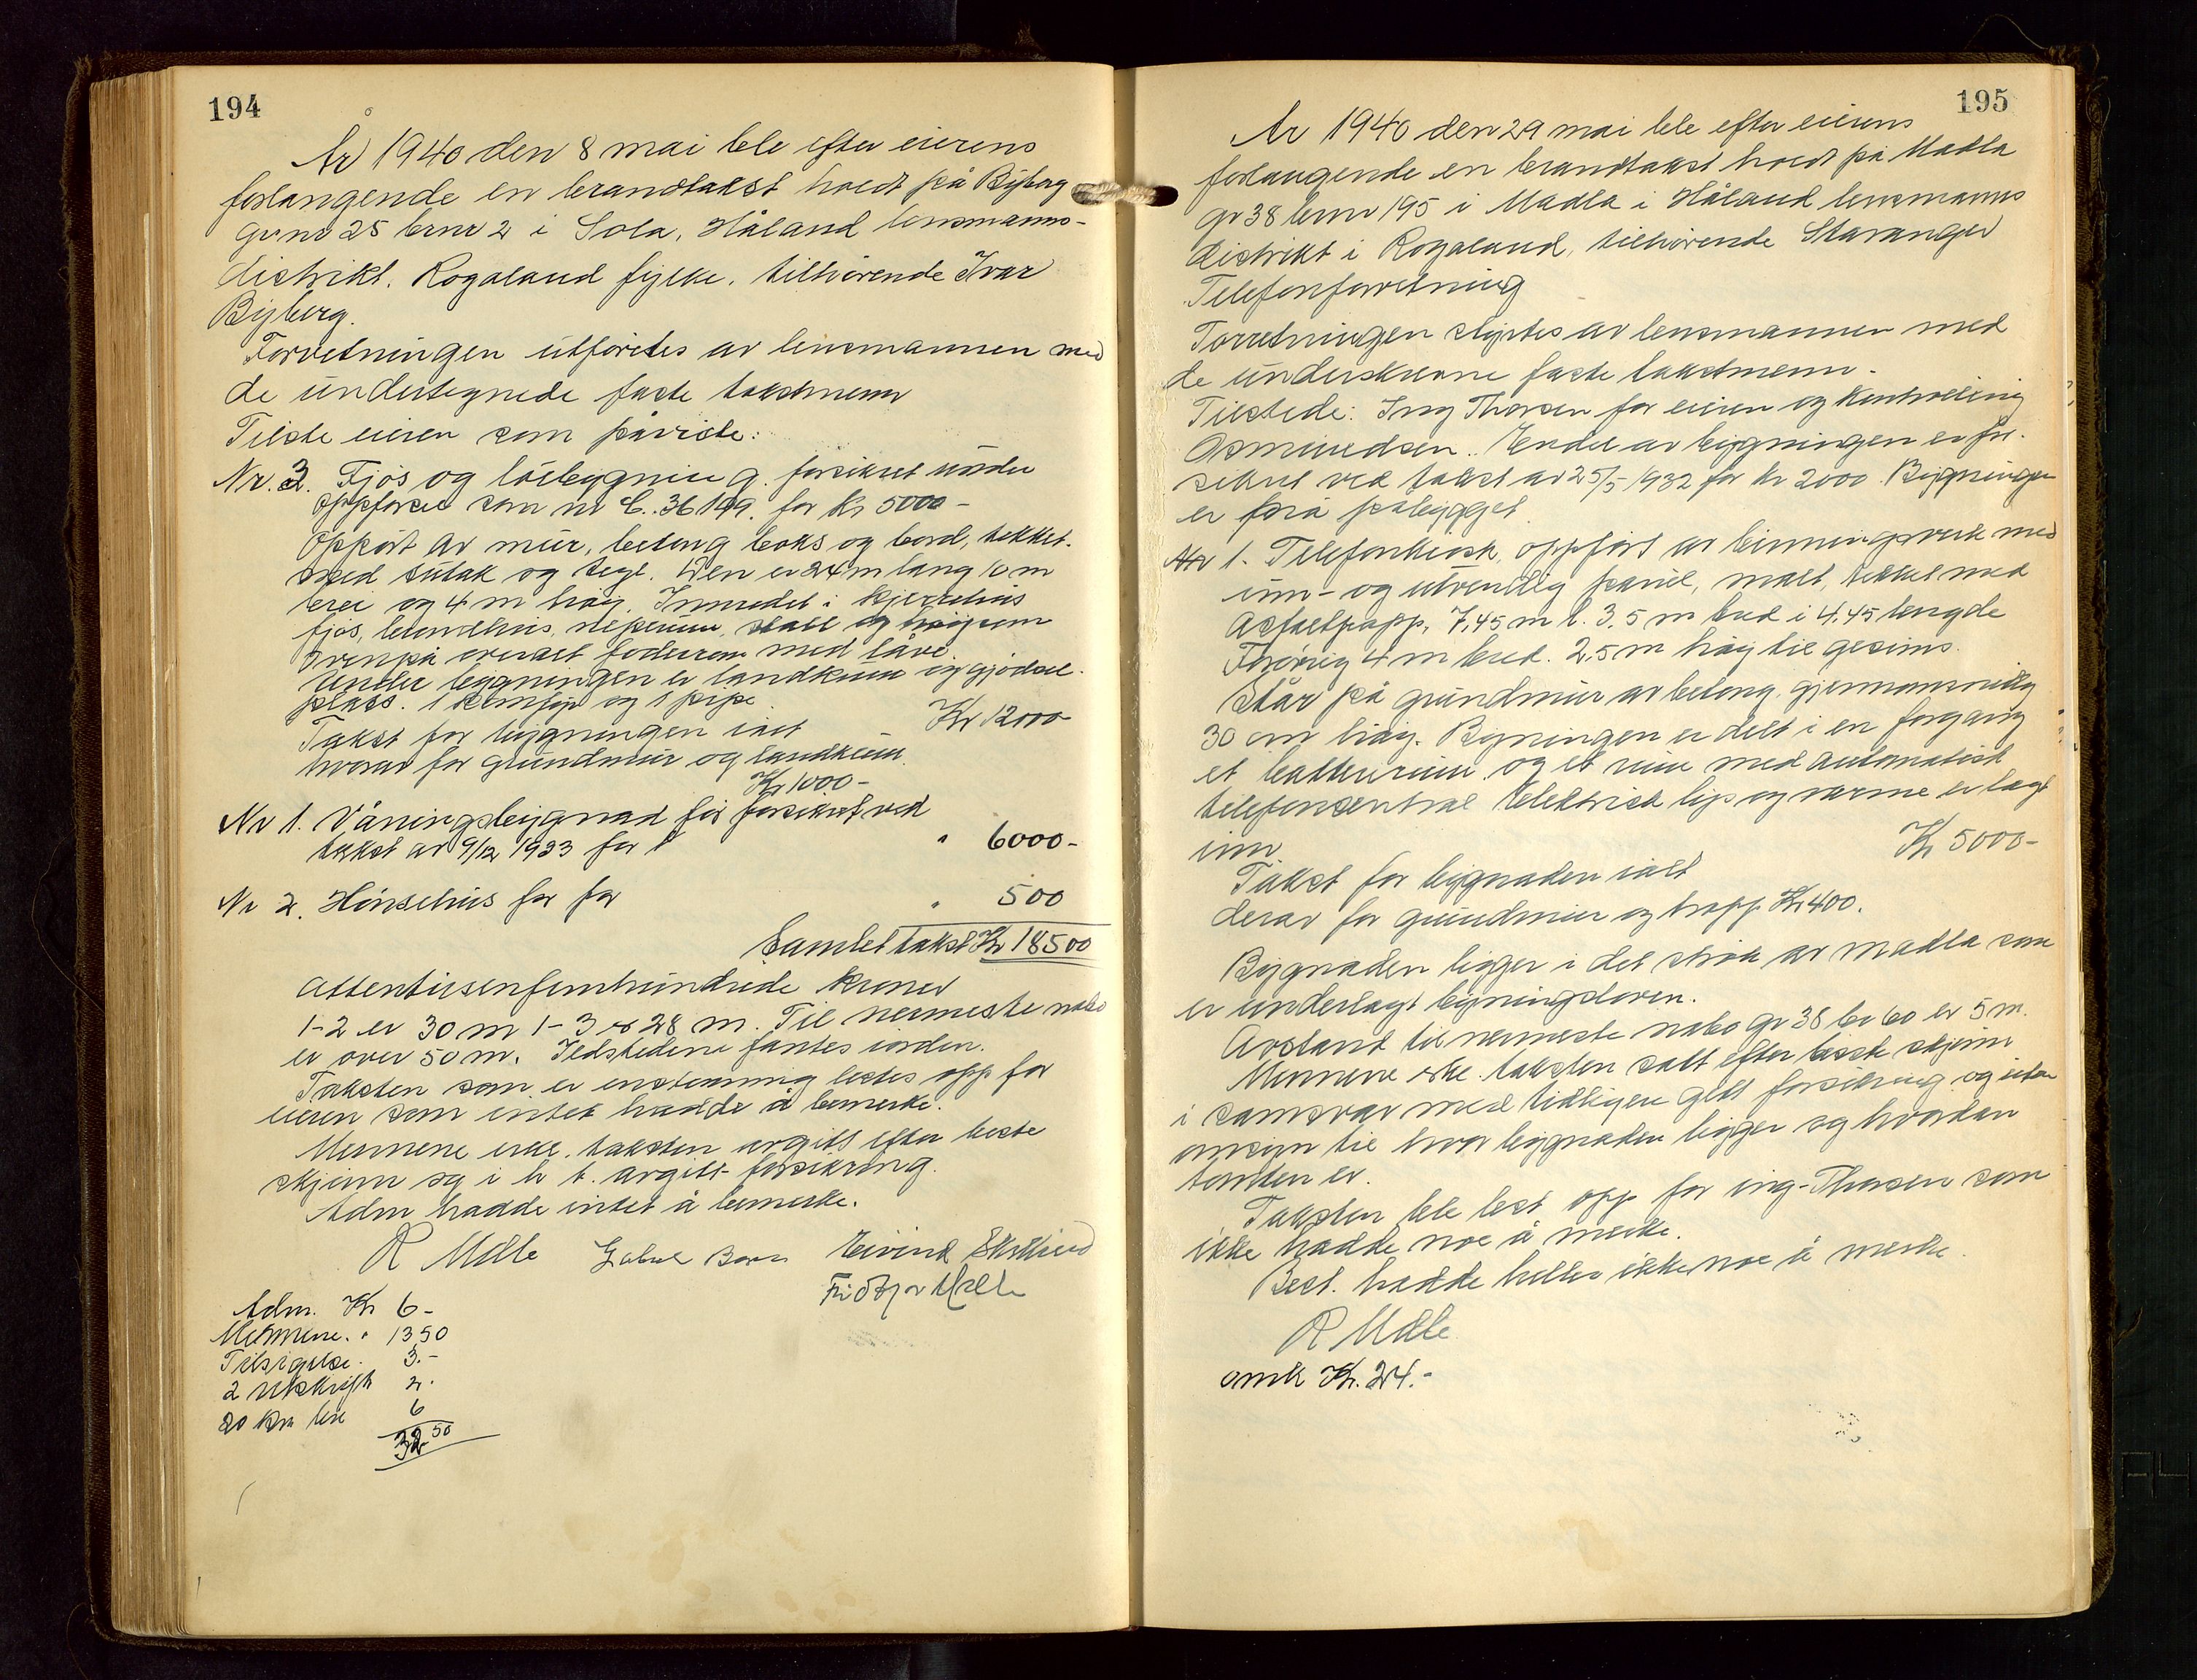 194
År 1940 den 8 mai ble efter eierens
forlangende en branntakst holdt på Byberg
gr nr 25 br nr 2 i Sola, Håland lensmanns-
distrikt, Rogaland fylke, tilhørende Ivar
Byberg.
Forretningen utførtes av lensmannen med
de undertegnede faste takstmenn
Tilste eieren som påviste:
Nr. 3. Fjøs og løebygning. forsikret under
oppførsel som nr C. 36199. for kr 5000-
Oppført av mur, betong boks og bord, tekket
med sutak og tegl. Den er 24 m lang 10 m
brei og 4 m høy. Innredet i kjerrehus
fjøs, brendhus, stall og høyrum
Ovenpå overalt foderrom med låve.
Under bygningen er landkum og gjødsel-
plass. 1 pipe
Takst for bygningen ialt Kr 12000
hvorav for grundmur og landkum
Kr 1000-
Nr 1. Våningsbygnad før forsikret ved
takst av 9/12 1933 for " 6000-
Nr 2. Hønsehus før for " 500
Samlet takst Kr 18500
Attentusenfemhundrede kroner
1-2 er 30 m 1-3 er 28 m. Til nermeste nabo
er over 50 m. Ildstedene fantes iorden.
Taksten som er enstemmig lestes opp for
eieren som intet hadde å bemerke.
Mennene erkl. taksten avgitt efter beste
skjønn og i h t. avgitt forsikring.
Adm hadde intet å bemerke.
R Mæle Gabriel Eivind
Fridtjov Mæle
Adm. Kr 6-
Mennene. " 1350
Tilsigelse. 3.-
2 utskrift 2.
20 km 6
50
195
År 1940 den 29 mai ble efter eierens
forlangende en branntakst holdt på Madla
gr 38 br nr 195 i Madla i Håland lensmanns
distrikt i Rogaland, tilhørende Stavanger
Telefonforretning
Forretningen styrtes av lensmannen med
de underskrevne faste takstmenn.
Tilstede: Ing Thorsen for eieren og
Asmundsen. Endel av bygningen er for-
sikret ved takst av 25/5 1932 for kr 2000. Bygningen
er påbygget
Nr 1. Telefonkiosk, oppført av binningsverk med
inn- og utvendig panel, malt, tekket med
Asfaltpapp, 7,45 m l. 3,5 m bred i 4,45 lengde
Forøvrig 4 m bred. 2,5 m høy til gesims.
Står på grundmur av betong, gjennomsnittlig
30 cm høy. Bygningen er delt i en forgang
et batterirum og et rum med automatisk
telefonsentral Elektrisk lys og varme er lagt
inn.
Takst for bygnaden ialt Kr 5000-
derav for grundmur og trapp Kr 400.
Bygnaden ligger i det strøk av Madla som
er underlagt bygningsloven.
Avstand til nermeste nabo gr 38 br 60 er 5 m.
Mennene erkl. taksten satt efter beste skjønn
i samsvar med tidligere gitt forsikring og uten
omsyn til hvor bygnaden ligger og hvordan
tomten er.
Taksten ble lest opp for ing. Thorsen som
ikke hadde noe å merke.
Best. hadde heller ikke noe å merke.
R Mæle
omk Kr. 24.-